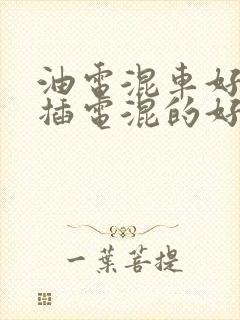 油電混車好
插電混的好
一葉菩提